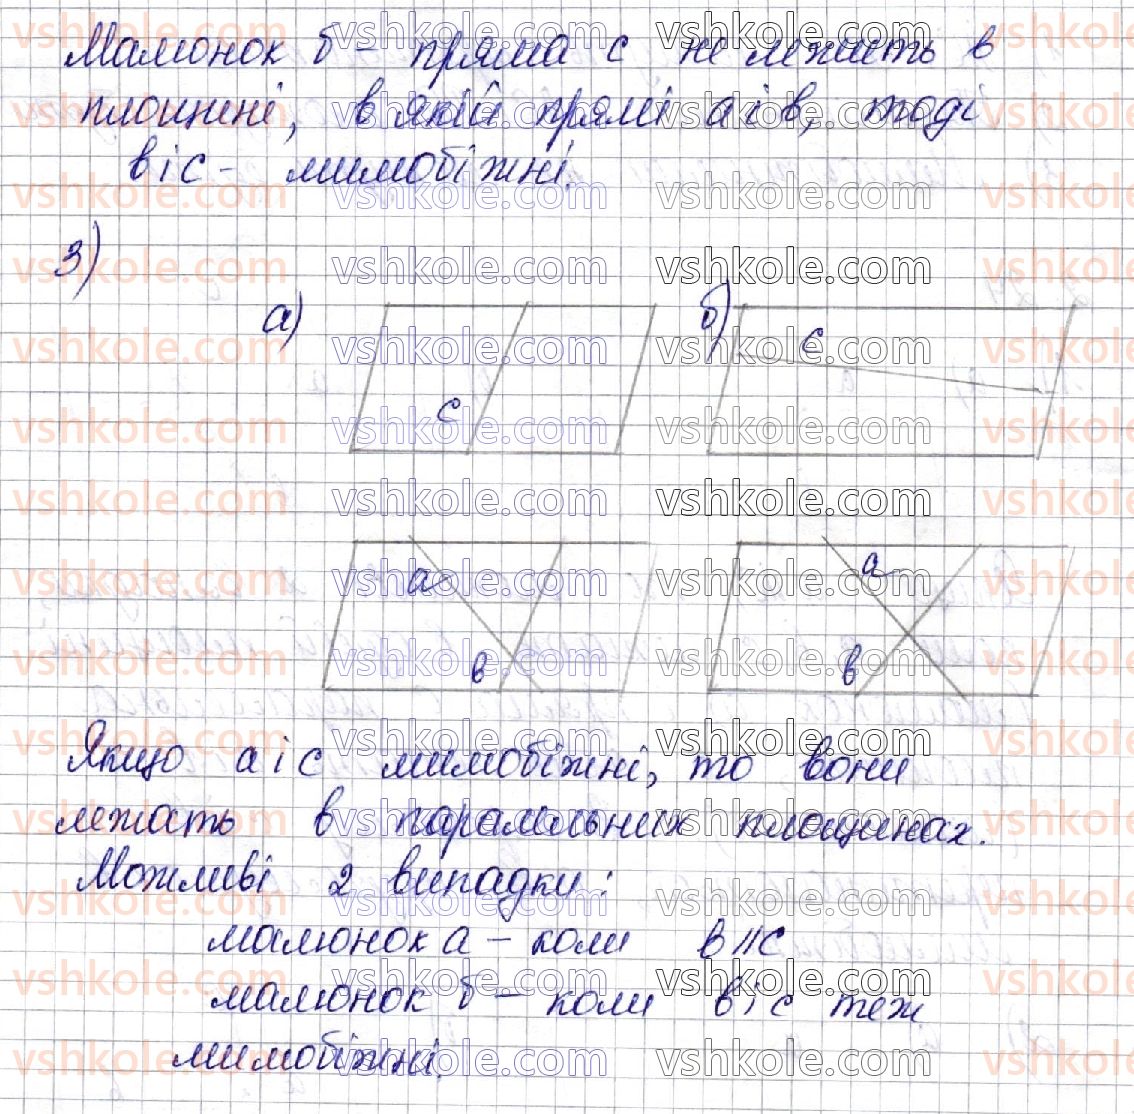 Малюнок б - пряма с не лежить в
площині, в якій прямі а і в, тоді
в і с - мимобіжні.
3)
а)
б)
с
с
а
в
а
в
Якщо а і с мимобіжні, то вони
лежать в паралельних площинах.
Можливі 2 випадки:
малюнок а - коли в || с
малюнок б - коли в і с теж
мимобіжні.
vshkole.com